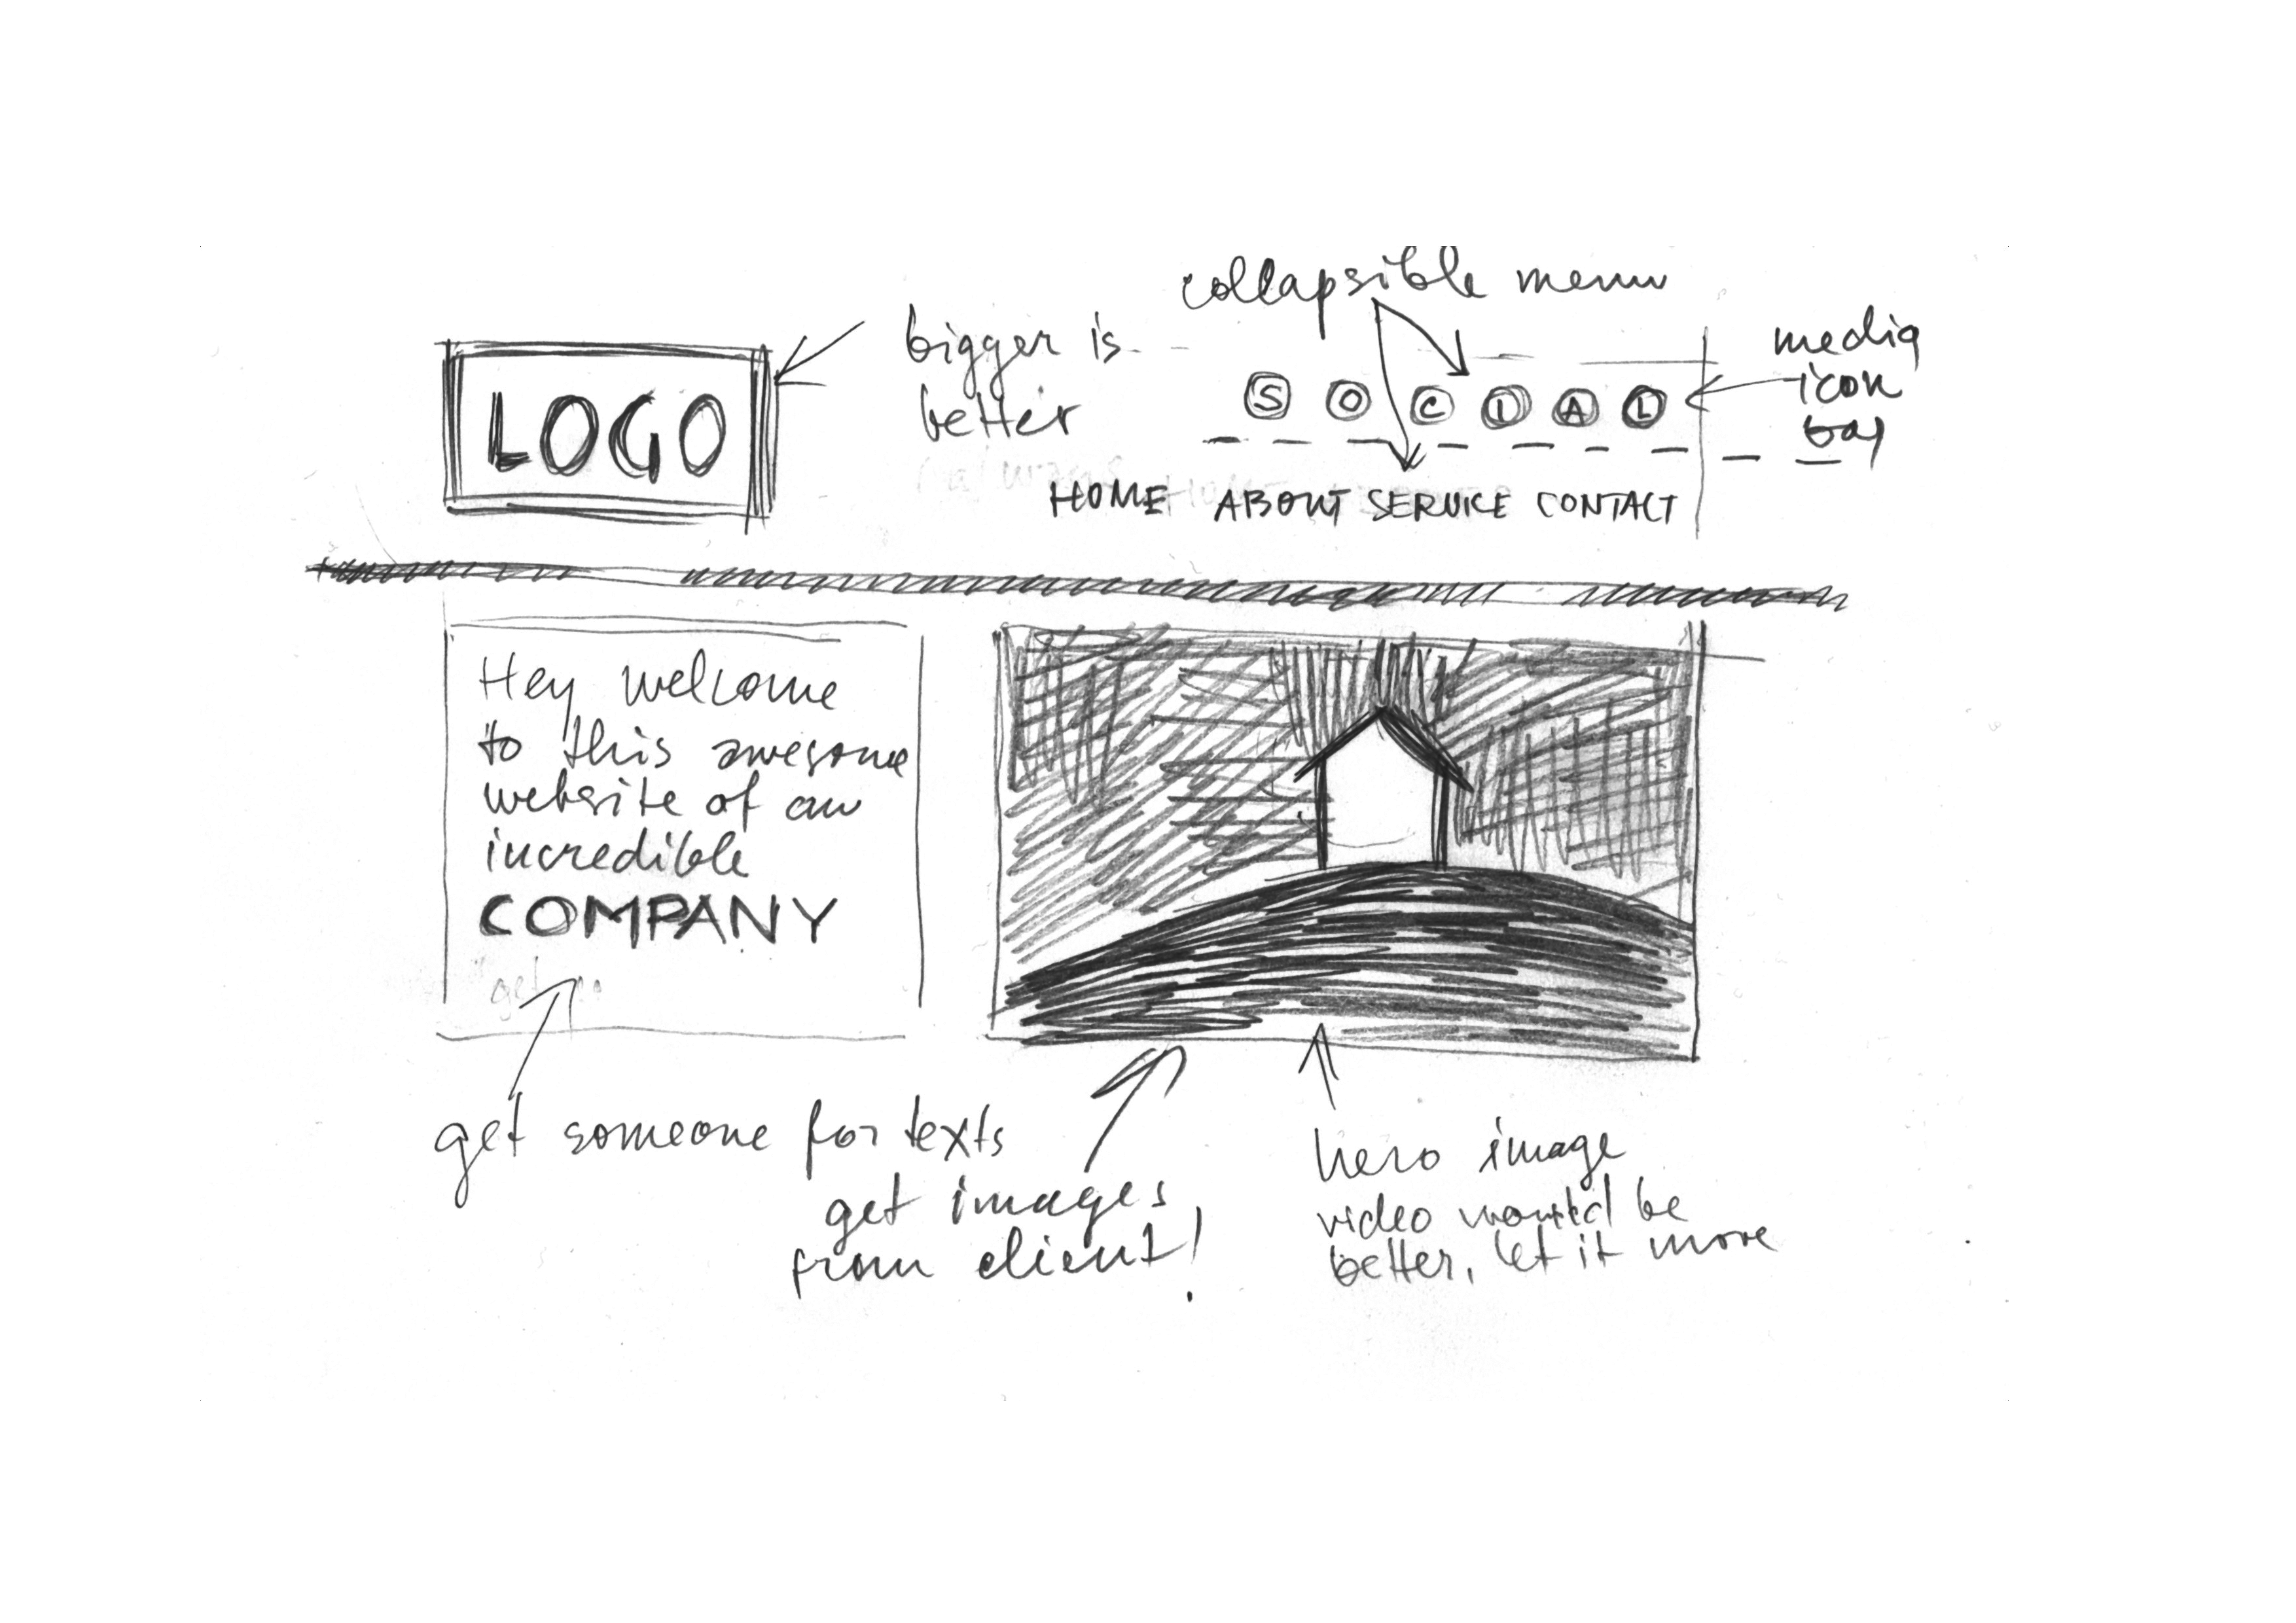 collapsible menu
bigger is
better
LOGO
S O C I A L
media
icon
HOME ABOUT SERVICE CONTACT
Hey welcome
to this awesome
website of an
incredible
COMPANY
get
get someone for texts
get images
from client!
hero image
video would be
better, let it move